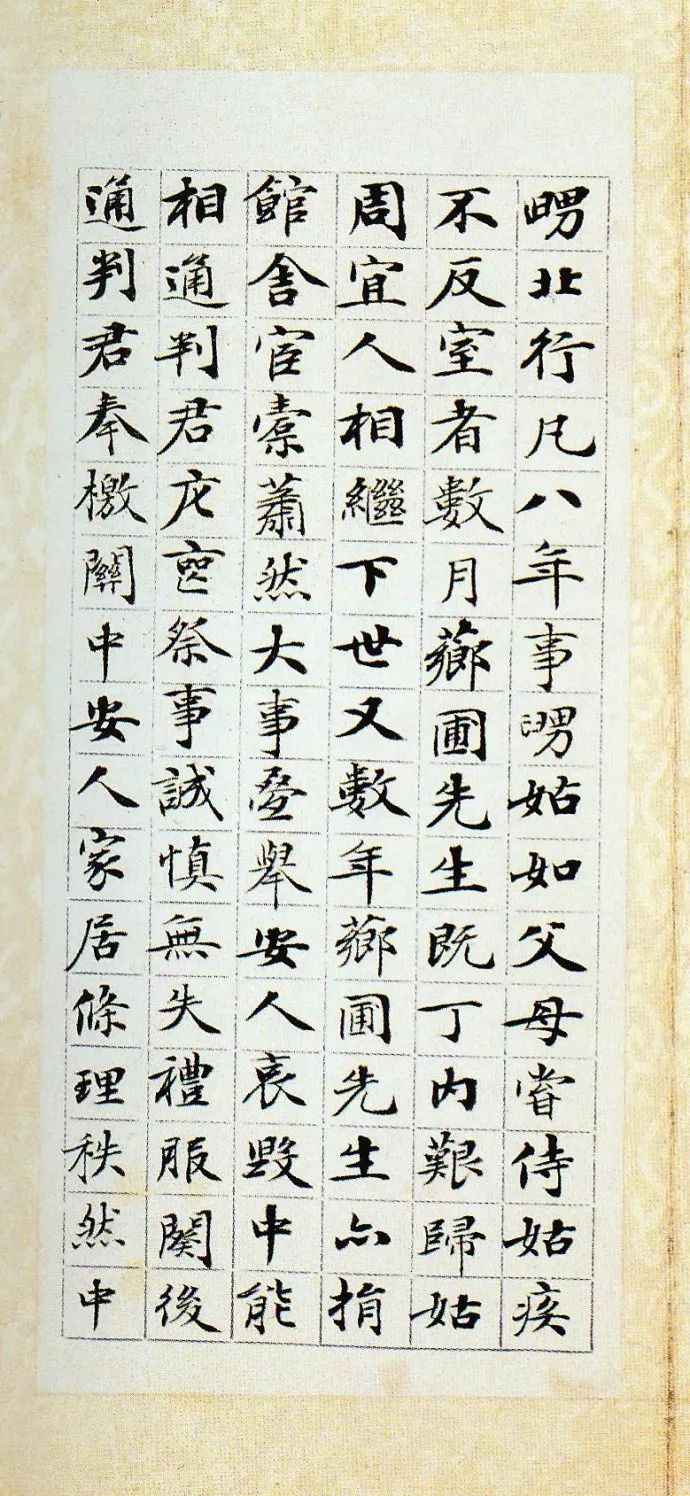 甥北行凡八年事甥姑如父母嘗侍姑疾
不反室者數月薌圃先生既丁内艱歸姑
周宜人相繼下世又數年薌圃先生亦捐
館舍宦橐蕭然大事壘舉安人哀毀中能
相通判君庀喪祭事誠慎無失禮服闋後
通判君奉檄關中安人家居條理秩然中